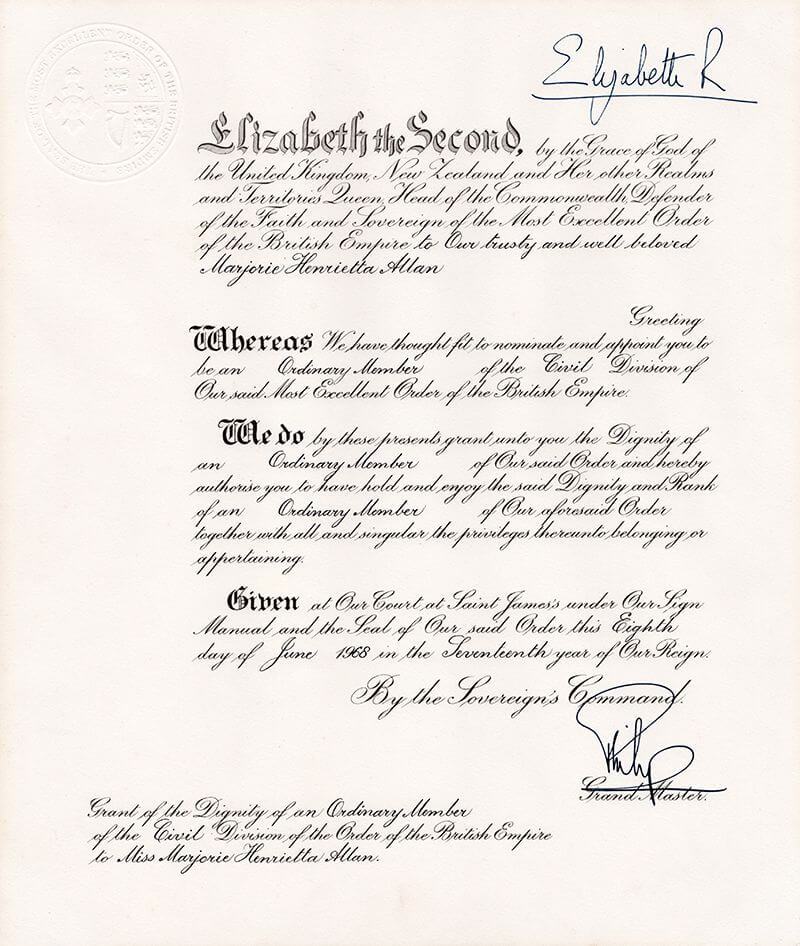 THE SEAL OF THE MOST EXCELLENT ORDER OF THE BRITISH EMPIRE
Elizabeth R
Elizabeth the Second, by the Grace of God of
the United Kingdom, New Zealand and Her other Realms
and Territories Queen, Head of the Commonwealth, Defender
of the Faith and Sovereign of the Most Excellent Order
of the British Empire to Our trusty and well beloved
Marjorie Henrietta Allan
Greeting
Whereas We have thought fit to nominate and appoint you to
be an Ordinary Member of the Civil Division of
Our said Most Excellent Order of the British Empire.
We do by these presents grant unto you the Dignity of
an Ordinary Member of Our said Order and hereby
authorise you to have hold and enjoy the said Dignity and Rank
of an Ordinary Member of Our aforesaid Order
together with all and singular the privileges thereunto belonging or
appertaining.
Given at Our Court at Saint James's under Our Sign
Manual and the Seal of Our said Order this Eighth
day of June 1968 in the Seventeenth year of Our Reign.
By the Sovereign's Command.
Philip
Grand Master.
Grant of the Dignity of an Ordinary Member
of the Civil Division of the Order of the British Empire
to Miss Marjorie Henrietta Allan.